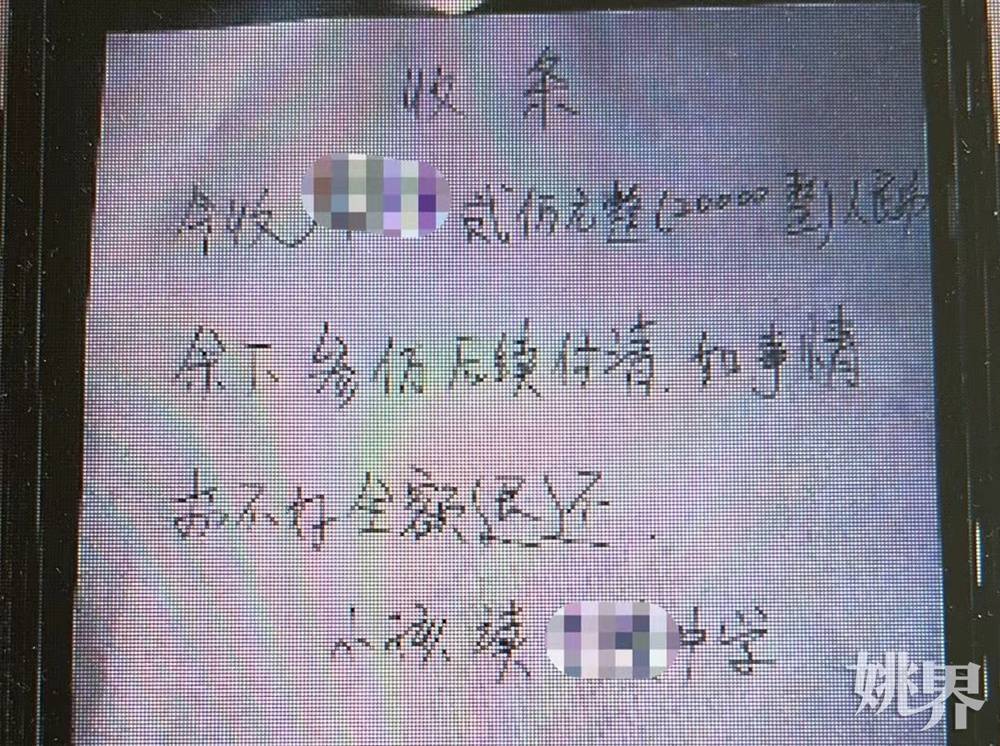 收条
今收 贰仟元整(20000整)人民币
余下叁仟后续付清.如事情
办不好全额退还.
小孩读 中学
姚界